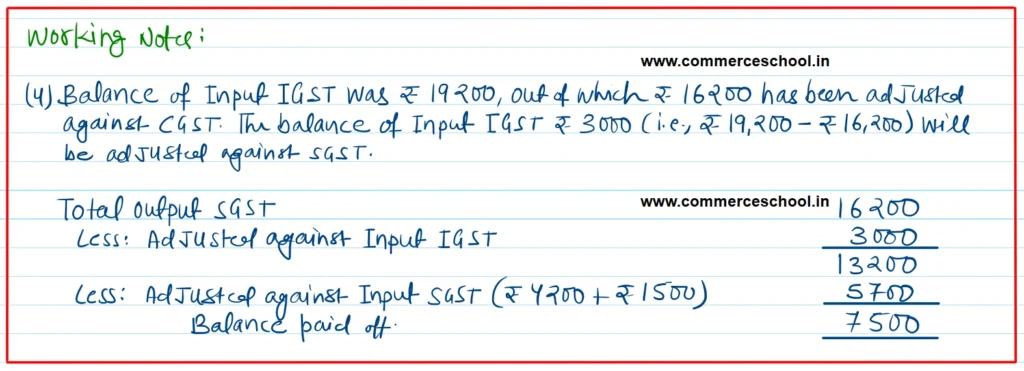 Working Note:
www.commerceschool.in
(4) Balance of Input IGST was ₹ 19200, out of which ₹ 16200 has been adjusted
against CGST. The balance of Input IGST ₹ 3000 (i.e., ₹ 19,200 – ₹ 16,200) will
be adjusted against SGST.
Total output SGST www.commerceschool.in 16200
Less: Adjusted against Input IGST 3000
13200
Less: Adjusted against Input SGST (₹ 4200 + ₹ 1500) 5700
Balance paid off. 7500